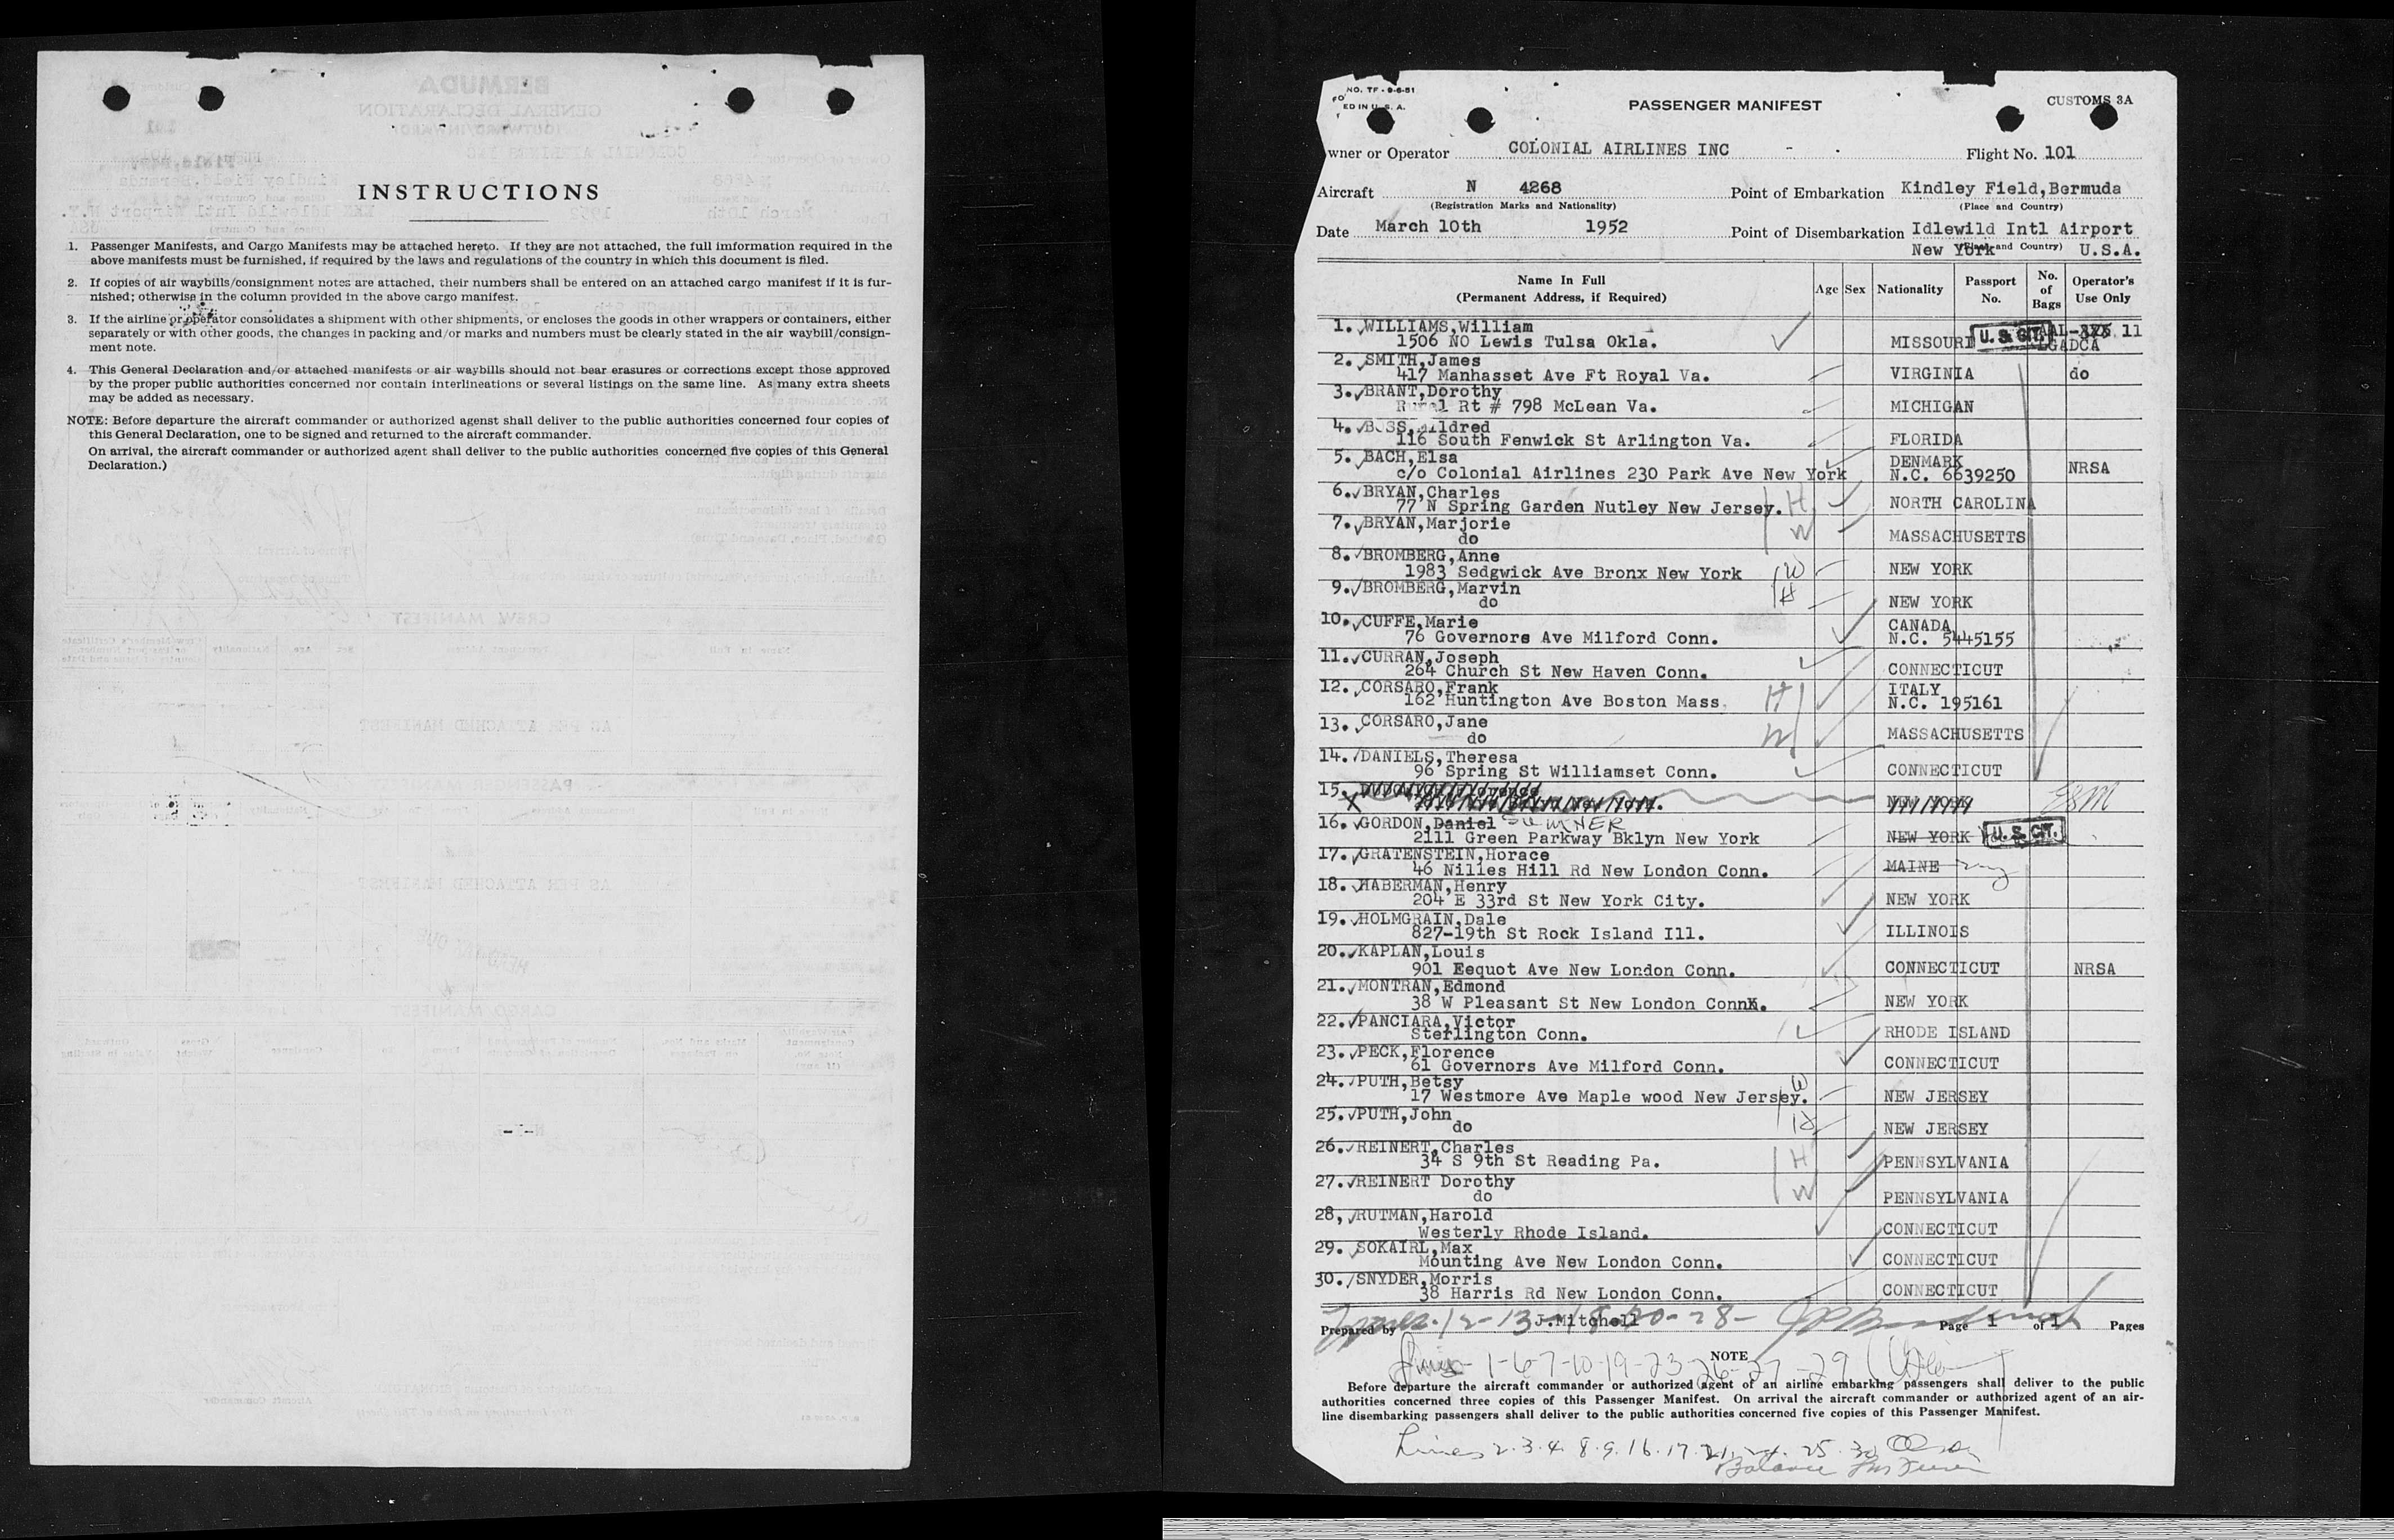 INSTRUCTIONS
1. Passenger Manifests, and Cargo Manifests may be attached hereto. If they are not attached, the full imformation required in the
above manifests must be furnished, if required by the laws and regulations of the country in which this document is filed.
2. If copies of air waybills/consignment notes are attached, their numbers shall be entered on an attached cargo manifest if it is fur-
nished; otherwise in the column provided in the above cargo manifest.
3. If the airline or operator consolidates a shipment with other shipments, or encloses the goods in other wrappers or containers, either
separately or with other goods, the changes in packing and/or marks and numbers must be clearly stated in the air waybill/consign-
ment note.
4. This General Declaration and/or attached manifests or air waybills should not bear erasures or corrections except those approved
by the proper public authorities concerned nor contain interlineations or several listings on the same line. As many extra sheets
may be added as necessary.
NOTE: Before departure the aircraft commander or authorized agenst shall deliver to the public authorities concerned four copies of
this General Declaration, one to be signed and returned to the aircraft commander.
On arrival, the aircraft commander or authorized agent shall deliver to the public authorities concerned five copies of this General
Declaration.)
NO. TF - 9-6-51
ED IN U. S. A.
PASSENGER MANIFEST
CUSTOMS 3A
wner or Operator COLONIAL AIRLINES INC Flight No. 101
Aircraft N 4268 Point of Embarkation Kindley Field,Bermuda
(Registration Marks and Nationality) (Place and Country)
Date March 10th 1952 Point of Disembarkation Idlewild Intl Airport
New York (Place and Country) U.S.A.
Name In Full (Permanent Address, if Required) Age Sex Nationality Passport No. No. of Bags Operator's Use Only
1. WILLIAMS,William
1506 NO Lewis Tulsa Okla. MISSOURI U. S. CIT. 11
2. SMITH,James
417 Manhasset Ave Ft Royal Va. VIRGINIA do
3. BRANT,Dorothy
Rural Rt # 798 McLean Va. MICHIGAN
4. Mildred
116 South Fenwick St Arlington Va. FLORIDA
5. BACH,Elsa DENMARK
c/o Colonial Airlines 230 Park Ave New York N.C. 6639250 NRSA
6. BRYAN,Charles
77 N Spring Garden Nutley New Jersey. H NORTH CAROLINA
7. BRYAN,Marjorie
do W MASSACHUSETTS
8. BROMBERG,Anne
1983 Sedgwick Ave Bronx New York W NEW YORK
9. BROMBERG,Marvin
do H NEW YORK
10. CUFFE,Marie CANADA
76 Governors Ave Milford Conn. N.C. 5445155
11. CURRAN,Joseph
264 Church St New Haven Conn. CONNECTICUT
12. CORSARO,Frank ITALY
162 Huntington Ave Boston Mass. H N.C. 195161
13. CORSARO,Jane
do W MASSACHUSETTS
14. DANIELS,Theresa
96 Spring St Williamset Conn. CONNECTICUT
15.
X NEW YORK
16. GORDON,Daniel SUMNER
2111 Green Parkway Bklyn New York NEW YORK U. S. CIT.
17. GRATENSTEIN,Horace
46 Nilles Hill Rd New London Conn. MAINE
18. HABERMAN,Henry
204 E 33rd St New York City. NEW YORK
19. HOLMGRAIN,Dale
827-19th St Rock Island Ill. ILLINOIS
20. KAPLAN,Louis
901 Eequot Ave New London Conn. CONNECTICUT NRSA
21. MONTRAN,Edmond
38 W Pleasant St New London Conn. NEW YORK
22. PANCIARA,Victor
Sterlington Conn. RHODE ISLAND
23. PECK,Florence
61 Governors Ave Milford Conn. CONNECTICUT
24. PUTH,Betsy
17 Westmore Ave Maple wood New Jersey. W NEW JERSEY
25. PUTH,John
do H NEW JERSEY
26. REINERT,Charles
34 S 9th St Reading Pa. H PENNSYLVANIA
27. REINERT Dorothy
do W PENNSYLVANIA
28, RUTMAN,Harold
Westerly Rhode Island. CONNECTICUT
29. SOKAIRL,Max
Mounting Ave New London Conn. CONNECTICUT
30. SNYDER,Morris
38 Harris Rd New London Conn. CONNECTICUT
12-13-18-20-28-
Prepared by J.Mitchell Page 1 of 1 Pages
NOTE
1-6-7-10-19-23-26-27-29
Before departure the aircraft commander or authorized agent of an airline embarking passengers shall deliver to the public
authorities concerned three copies of this Passenger Manifest. On arrival the aircraft commander or authorized agent of an air-
line disembarking passengers shall deliver to the public authorities concerned five copies of this Passenger Manifest.
Lines 2.3.4. 8.9.16.17.21.24.25.30
Balance